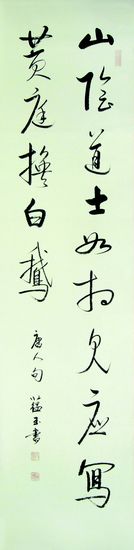 山陰道士如相見應寫
黄庭換白鵝
唐人句 蕴玉書